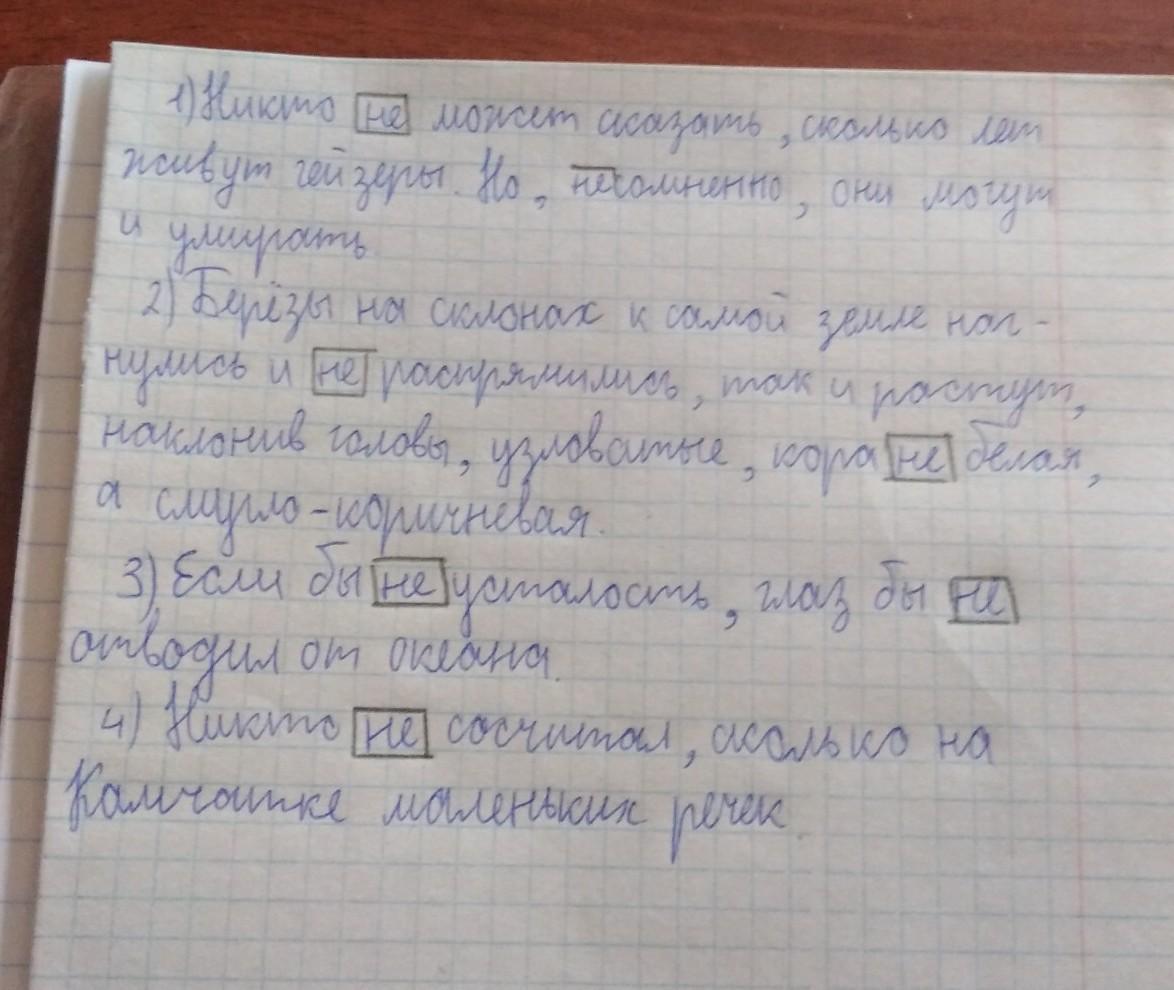 1) Никто не может сказать, сколько лет
живут гейзеры. Но, несомненно, они могут
и умирать.
2) Берёзы на склонах к самой земле наг-
нулись и не распрямились, так и растут,
наклонив головы, узловатые, кора не белая,
а смугло-коричневая.
3) Если бы не усталость, глаз бы не
отводил от океана.
4) Никто не сосчитал, сколько на
Камчатке маленьких речек.